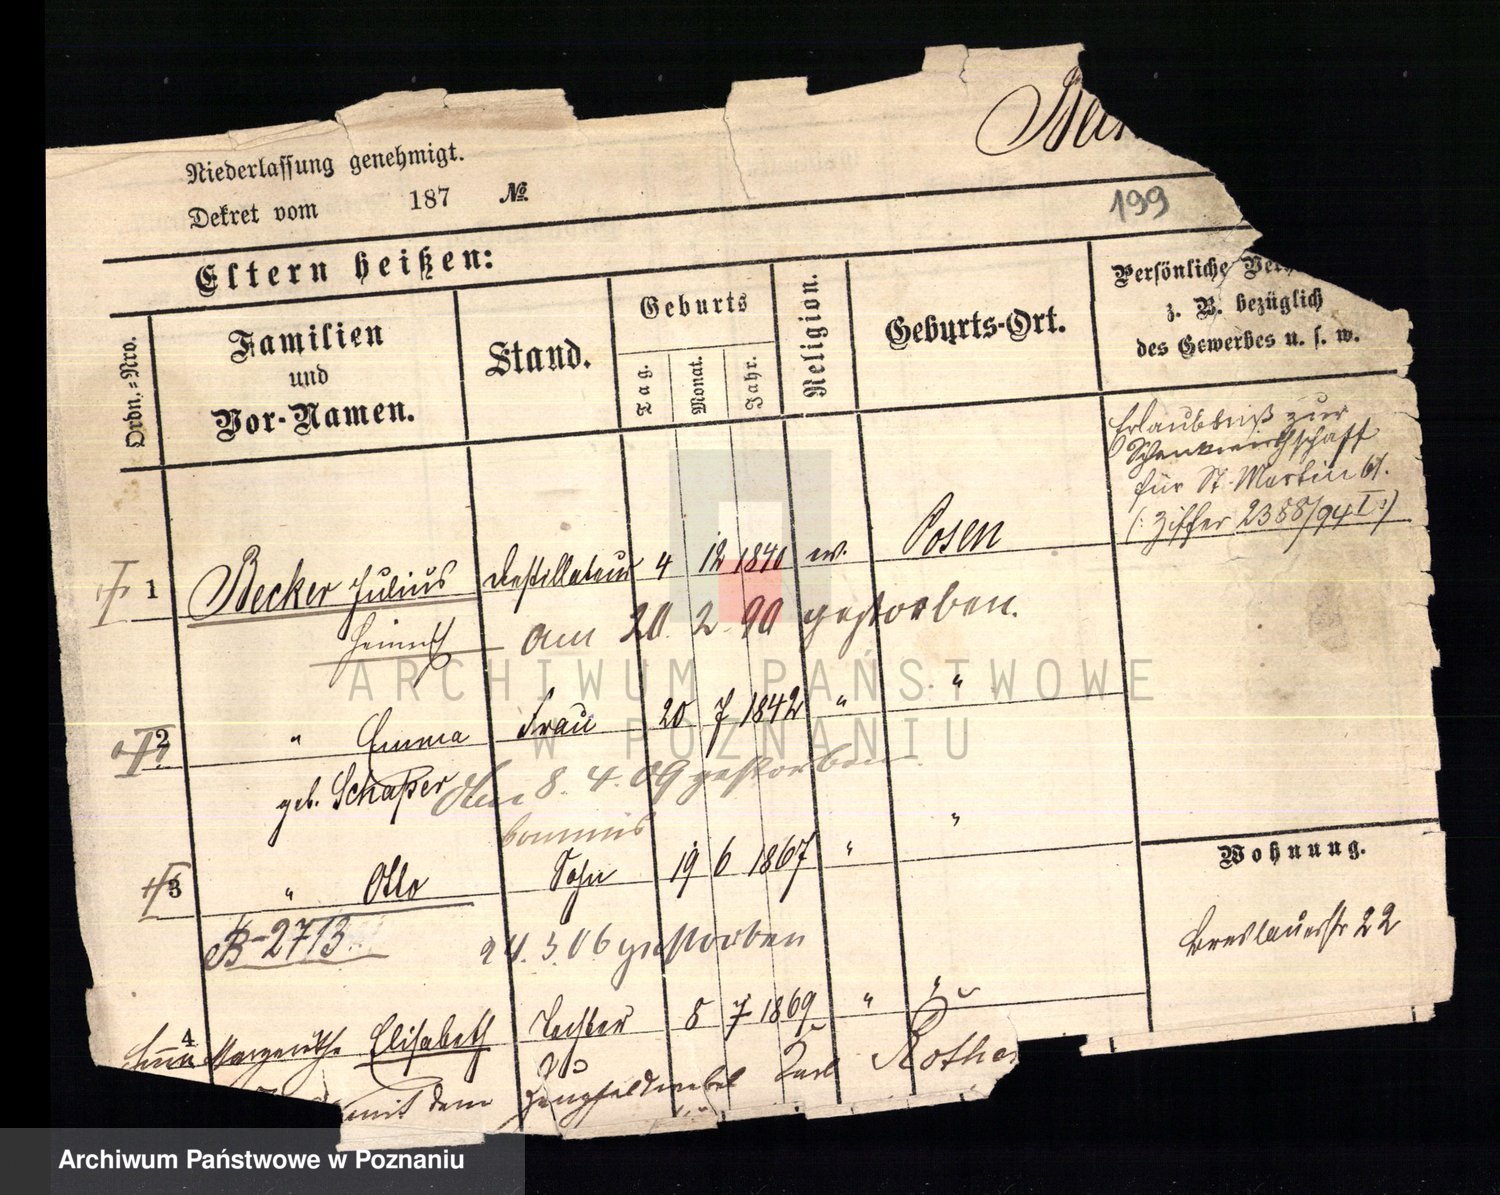 Niederlassung genehmigt.
Dekret vom 187 №
199
Eltern heißen:
Ordn.-Nro.
Familien
und
Vor-Namen.
Stand.
Geburts
Tag.
Monat.
Jahr.
Religion.
Geburts-Ort.
Persönliche
z. B. bezüglich
des Gewerbes u. s. w.
Erlaubniß zur
Schankwirthschaft
für St. Martin 61.
(: Ziffer 2388/94 I :)
1 Becker Julius Destillateur 4 12 1840 ev. Posen
Heinrich am 20. 2. 90 gestorben.
2 " Emma Frau 20 7 1842 " "
geb. Schaper Am 8. 4. 09 gestorben
Commis
3 " Otto Sohn 19 6 1867 " "
B-2713 24. 3. 06 gestorben
Wohnung.
Breslauerstr 22
4 Margarethe Elisabeth Tochter 8 7 1869 " "
mit dem Zeugfeldwebel Karl
ARCHIWUM PAŃSTWOWE
W POZNANIU
Archiwum Państwowe w Poznaniu